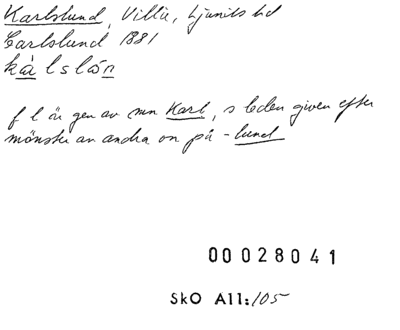 Karlslund, Villa, Ljunits hd
Carlslund 1881
kàlslón
f l är gen av mn Karl, s leden given efter
mönster av andra on på -lund
00028041
SkO All:105